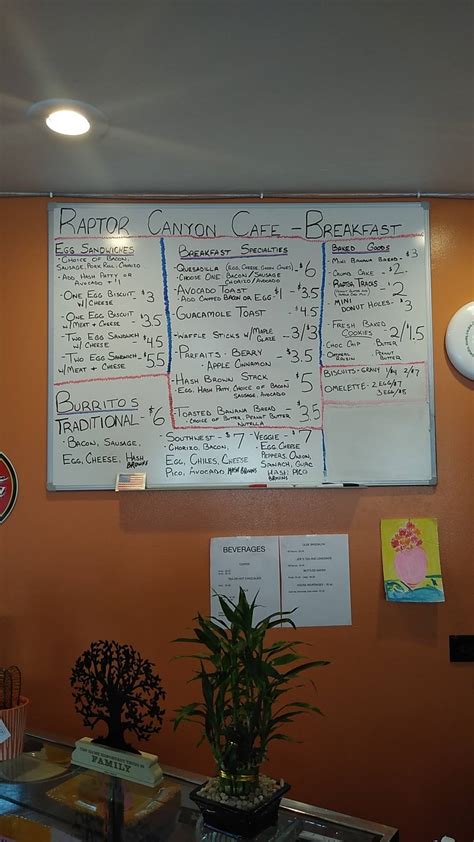 RAPTOR CANYON CAFE - BREAKFAST
EGG SANDWICHES
· CHOICE OF BACON,
SAUSAGE, PORK ROLL, CHORIZO
· ADD HASH PATTY OR
AVOCADO +$1
- ONE EGG BISCUIT - $3
W/CHEESE
- ONE EGG BISCUIT $3.5
W/MEAT + CHEESE
- TWO EGG SANDWICH $4.5
W/CHEESE
- TWO EGG SANDWICH - $5.5
W/MEAT + CHEESE
BREAKFAST SPECIALTIES
· QUESADILLA (EGG, CHEESE, GREEN CHILES) - $6
· CHOOSE ONE BACON/SAUSAGE
CHORIZO/AVOCADO
· AVOCADO TOAST - $3.5
ADD CHOPPED BACON OR EGG - $1
· GUACAMOLE TOAST - $4.5
- WAFFLE STICKS W/MAPLE GLAZE - 3/$3
- PARFAITS - BERRY - $3.5
APPLE CINNAMON
· HASH BROWN STACK - $5
EGG, HASH PATTY, CHOICE OF BACON
SAUSAGE, AVOCADO
· TOASTED BANANA BREAD - $3.5
- CHOICE OF BUTTER, PEANUT BUTTER
NUTELLA
BAKED GOODS
MINI BANANA BREAD - $3
- CRUMB CAKE - $2
- RAPTOR TRACKS - $2
- MINI
DONUT HOLES - $3
- FRESH BAKED
COOKIES - 2/$1.5
· CHOC CHIP · BUTTER
OATMEAL RAISIN · PEANUT BUTTER
BISCUITS + GRAVY 1/$4 2/$7
OMELETTE: 2 EGG/$7
3 EGG/$8
BURRITOS
TRADITIONAL - $6
- BACON, SAUSAGE,
EGG, CHEESE, HASH BROWNS
SOUTHWEST - $7
- CHORIZO, BACON,
EGG, CHILES, CHEESE
PICO, AVOCADO HASH BROWNS
VEGGIE - $7
EGG CHEESE
PEPPERS, ONION,
SPINACH, GUAC
HASH BROWNS PICO
BEVERAGES
FAMILY